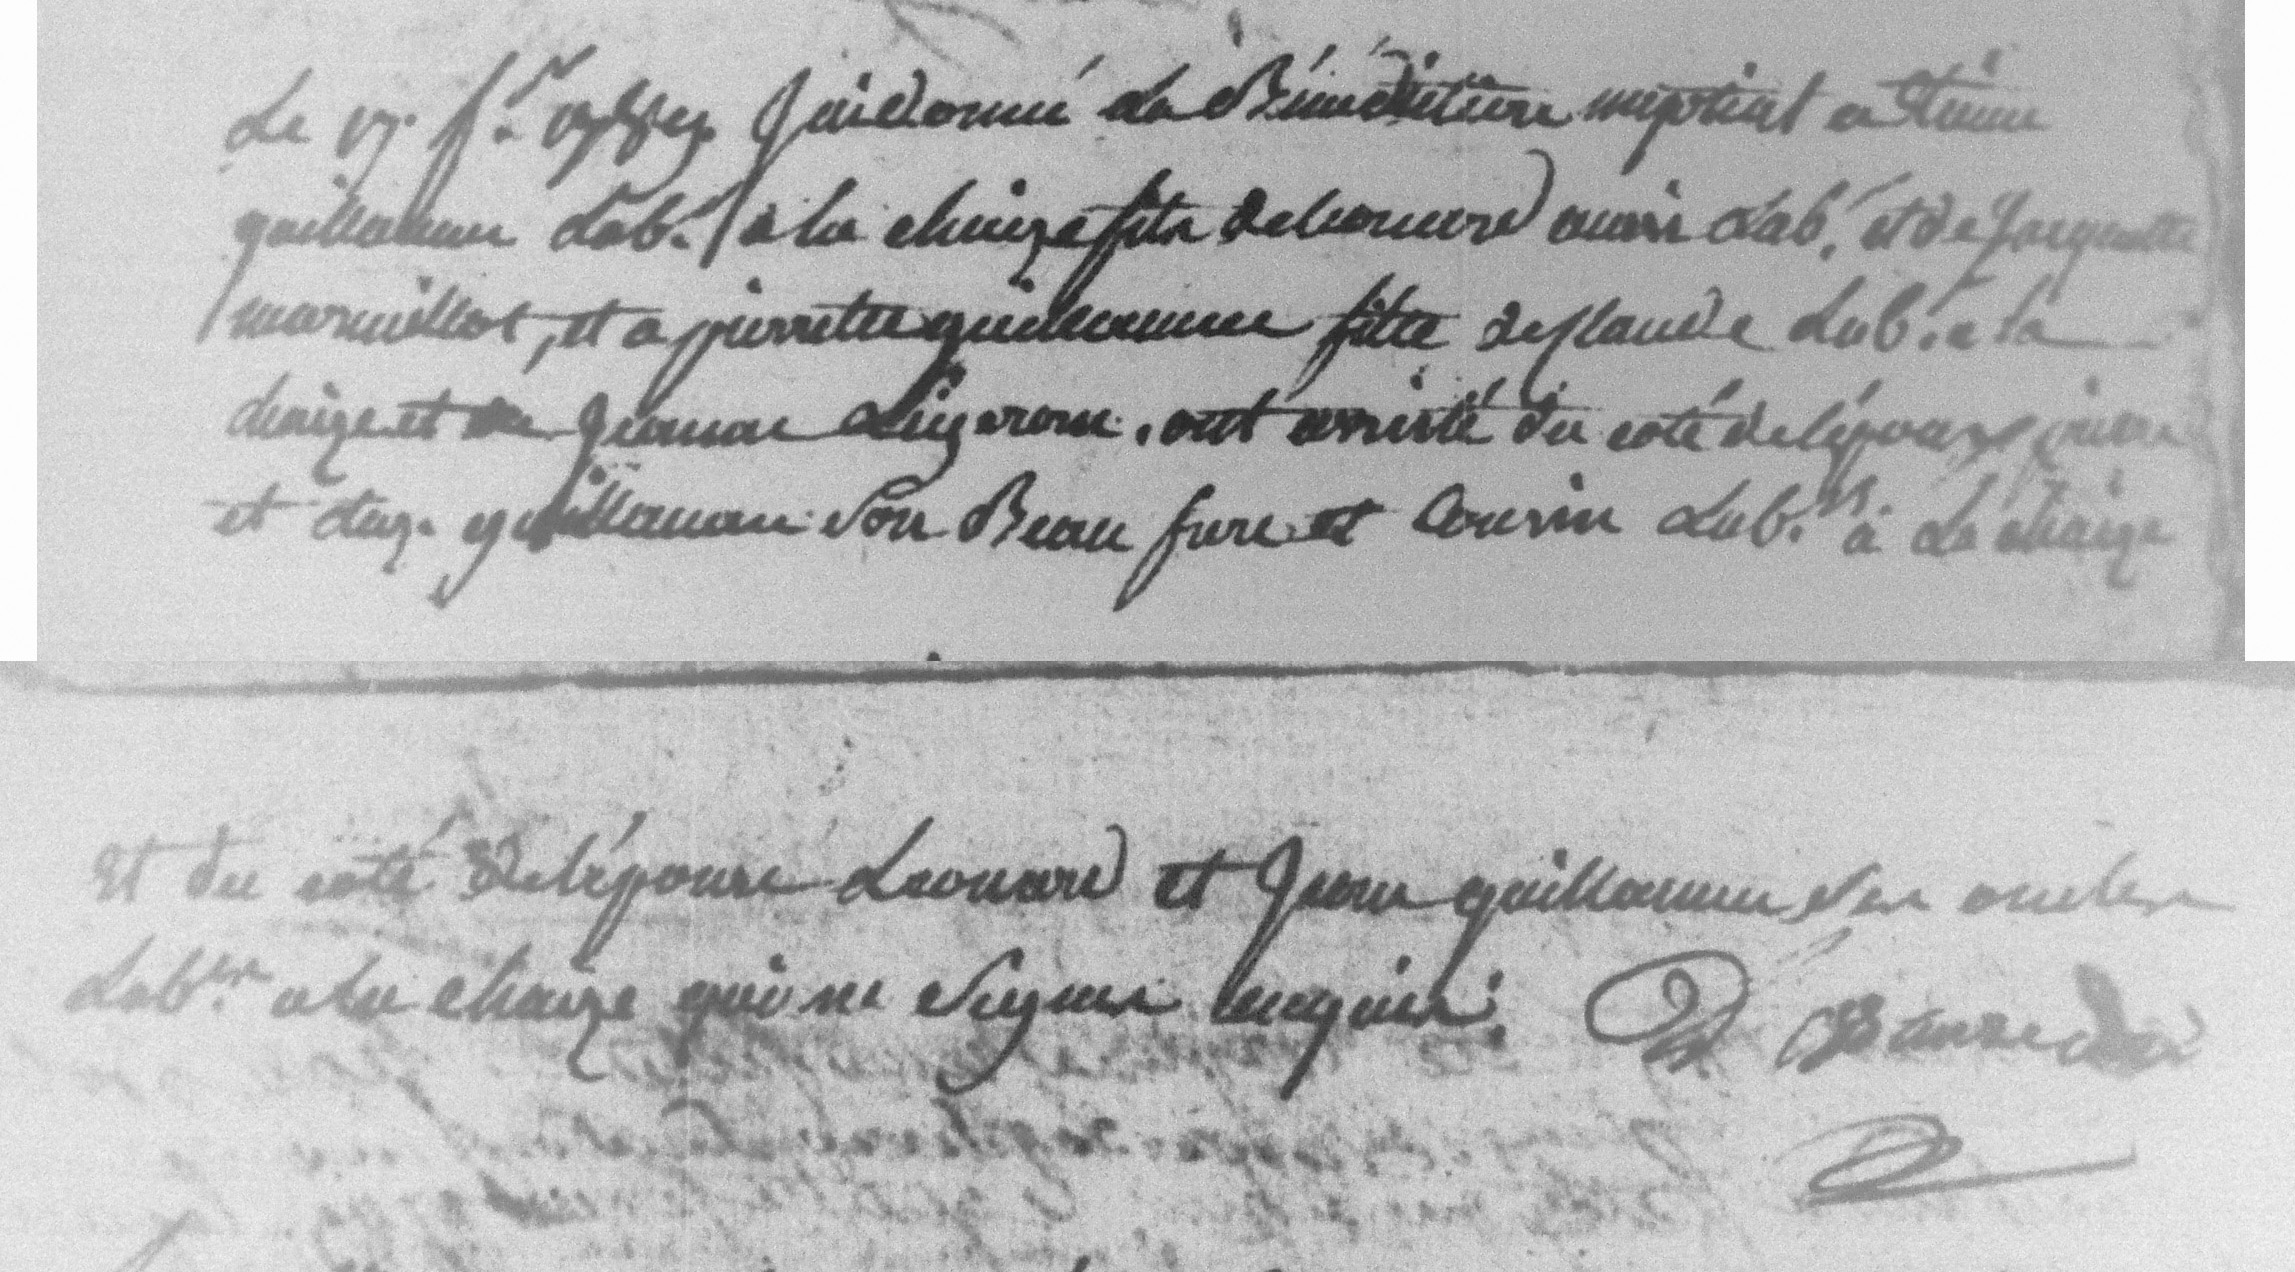 Le 17. f.r J'ai donné La Bénédiction nuptial a Etiene
guillaume Lab.r à la chaize fils de leonard aussi Lab.r et de Jacquette
marmillot, et a pierrette guillaume fille de claude Lab.r a la
chaize et de Jeanne . ont assisté du coté de lépoux pierre
et guillaume son Beau frere et Cousin Lab.rs à La chaize
Et du coté de lépouse Leonard et Jean guillaume ses oncles
Lab.rs a la chaize qui ne signes enquis.